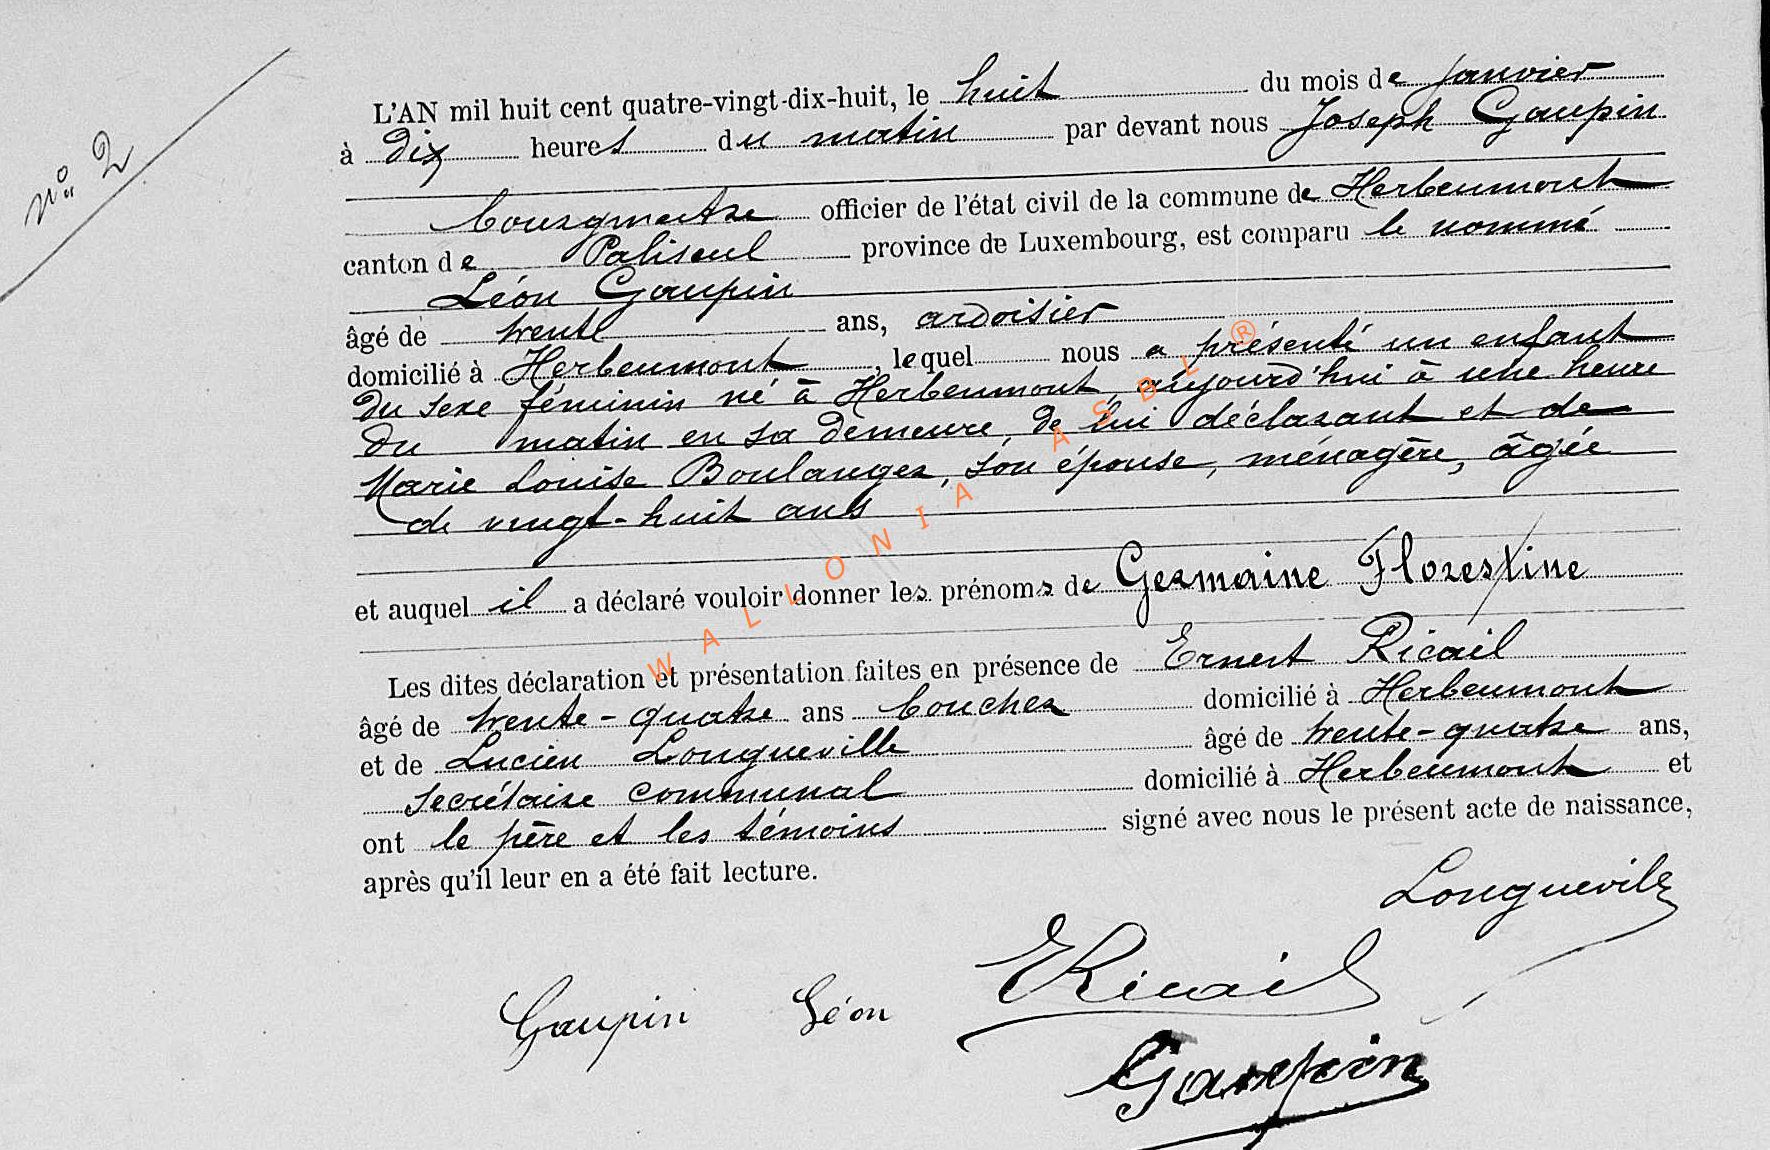 nº 2
L'AN mil huit cent quatre-vingt-dix-huit, le huit du mois de janvier
à dix heures du matin par devant nous Joseph Gaupin
bourgmestre officier de l'état civil de la commune de Herbeumont
canton de Paliseul province de Luxembourg, est comparu le nommé
Léon Gaupin
âgé de trente ans, ardoisier
domicilié à Herbeumont, lequel nous a présenté un enfant
du sexe féminin né à Herbeumont, aujourd'hui à une heure
du matin en sa demeure, de lui déclarant et de
Marie Louise Boulanger, son épouse, ménagère, âgée
de vingt-huit ans
et auquel il a déclaré vouloir donner les prénoms de Germaine Florestine
Les dites déclaration et présentation faites en présence de Ernest Ricail
âgé de trente-quatre ans boucher domicilié à Herbeumont
et de Lucien Longueville âgé de trente-quatre ans,
secrétaire communal domicilié à Herbeumont et
ont le père et les témoins signé avec nous le présent acte de naissance,
après qu'il leur en a été fait lecture.
Longueville
ERicail
Gaupin Léon
Gaupin
WALLONIA ASBL ®